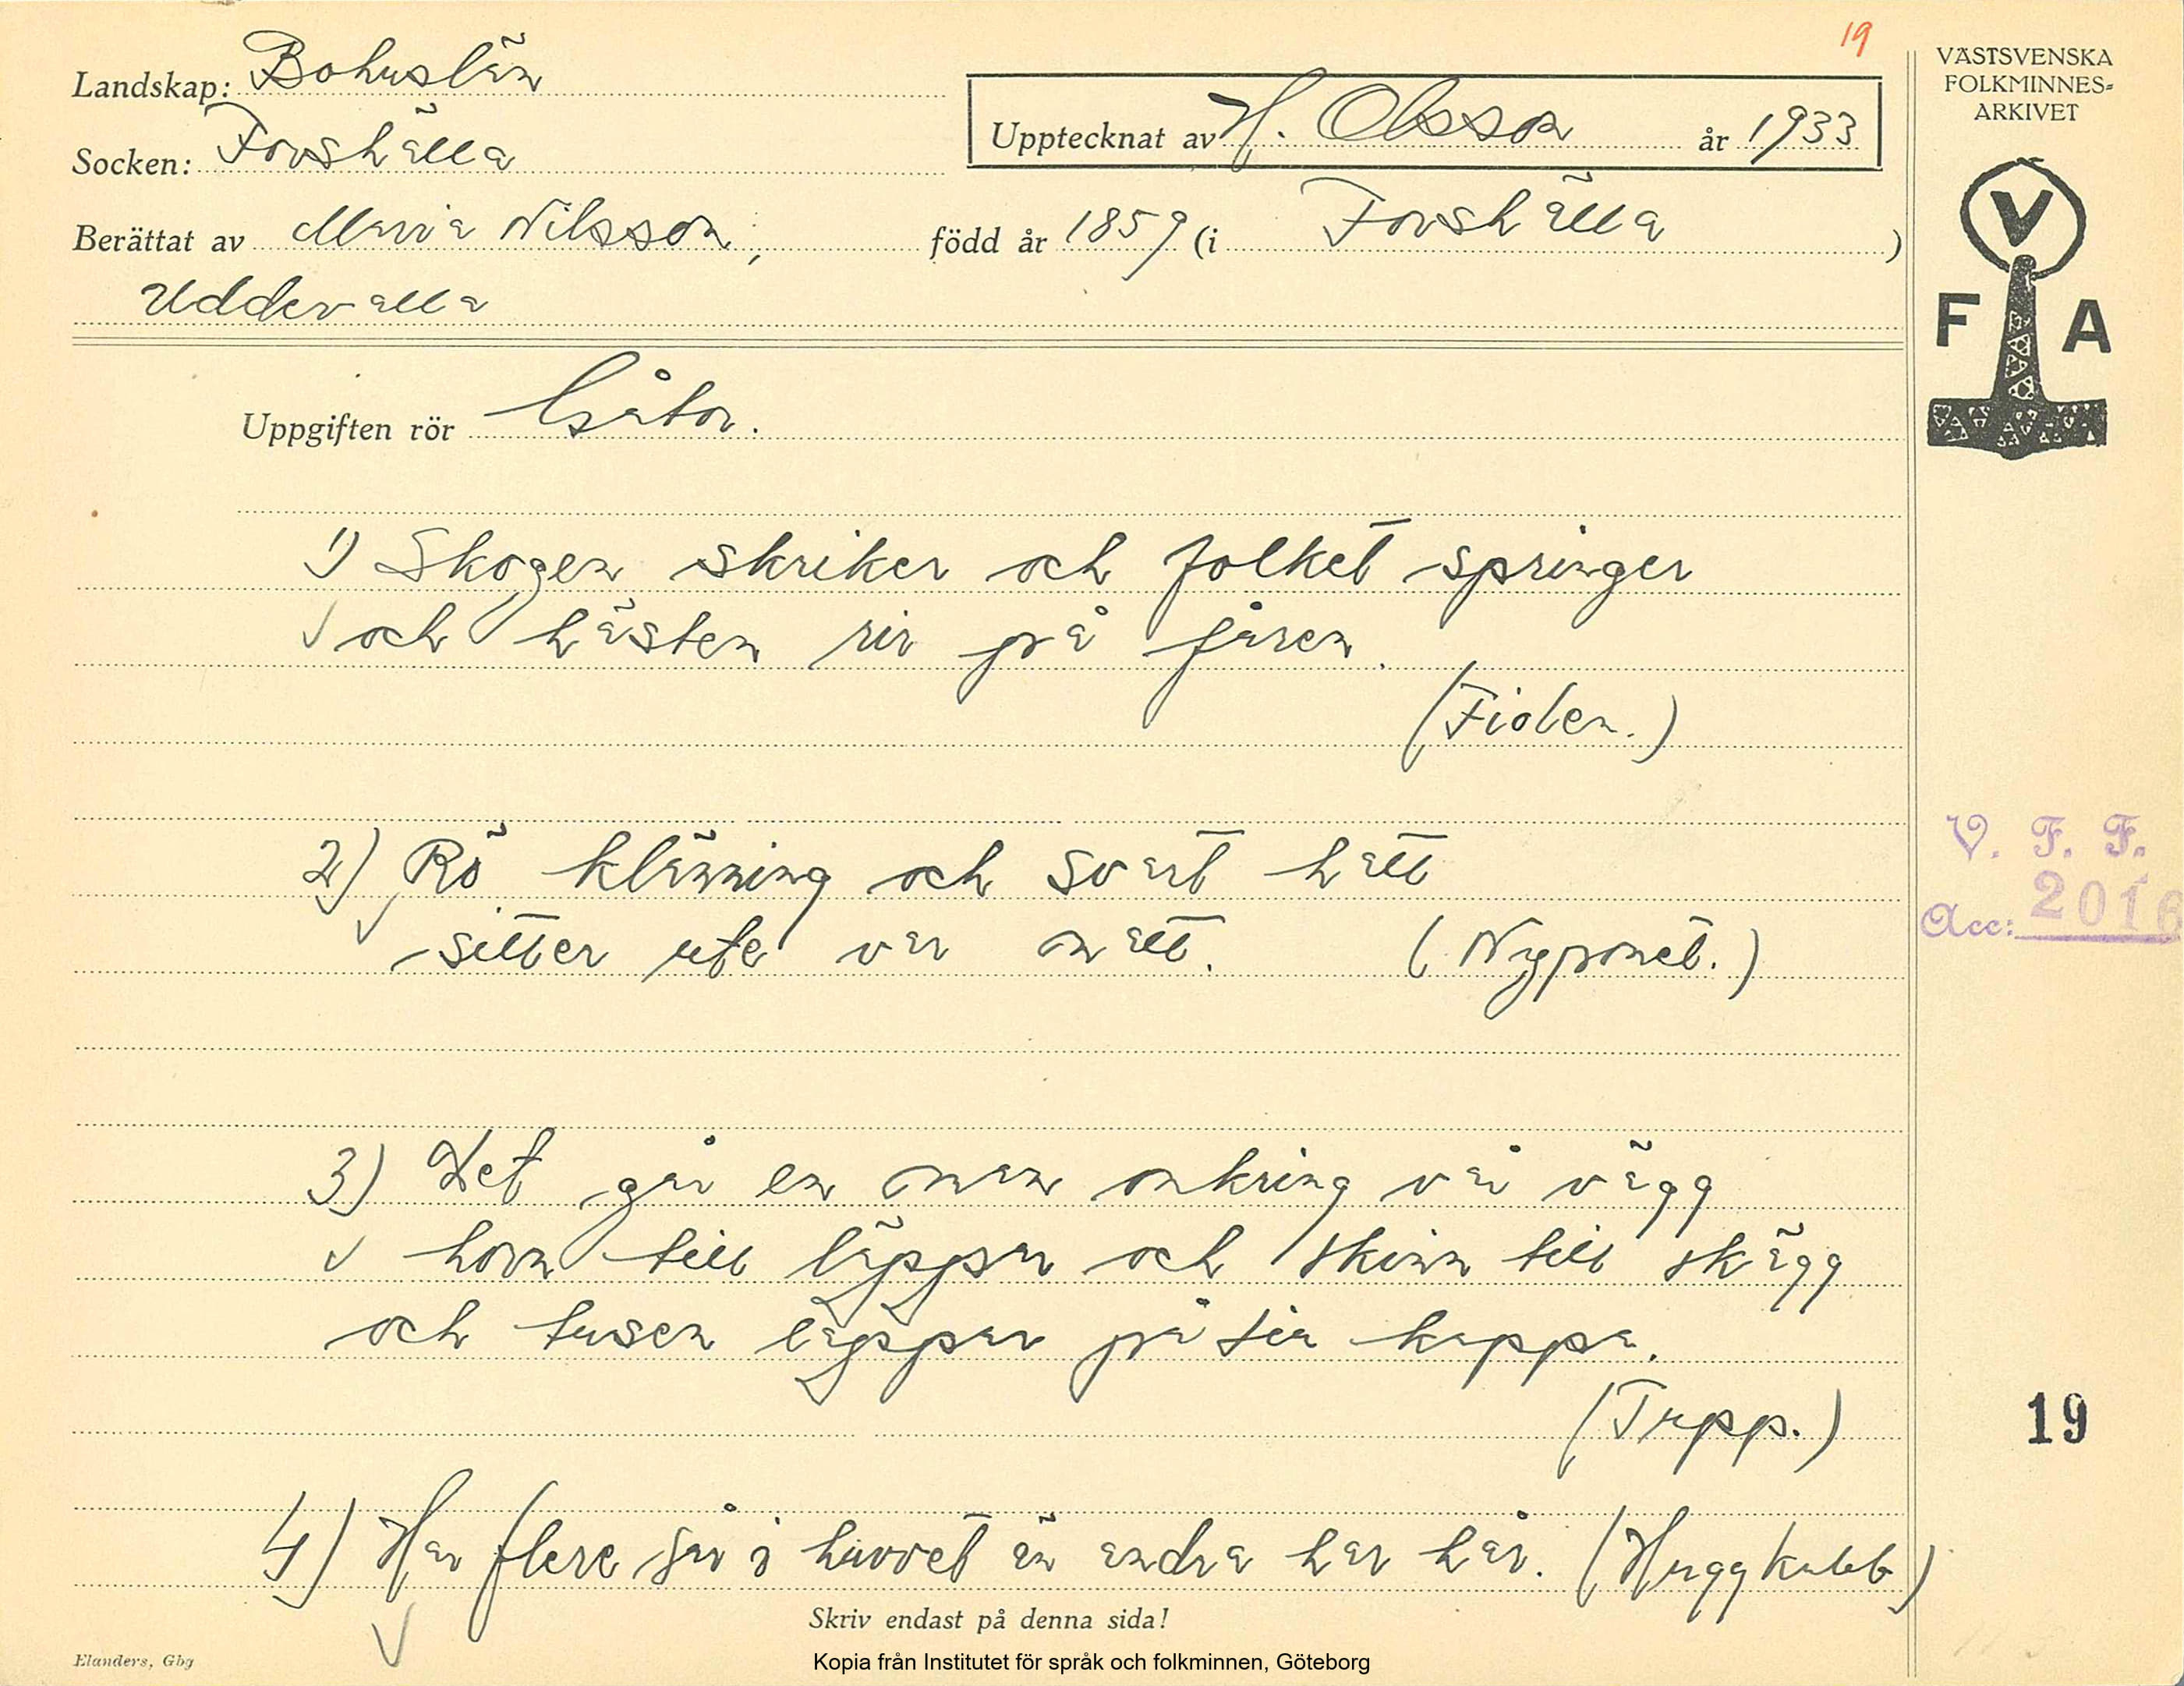 19
VÄSTSVENSKA
FOLKMINNES-
ARKIVET
Landskap: Bohuslän
Socken: Forshälla
Upptecknat av H. Olsson år 1933
Berättat av Maria Nilsson, född år 1859 (i Forshälla)
Uddevalla
V
F A
Uppgiften rör Gåtor.
1) Skogen skriker och folket springer
och hästen rir på fåren.
(Fiolen.)
2) Rö klänning och svart hatt
sitter ute var natt. (Nyponet.)
V. F. F.
Acc: 2016
3) Det går en man omkring vår vägg
horn till läppar och skinn till skägg
och tusen lappar på sia kappa.
(Tupp.)
19
4) Har flere sår i huvvet än andra har hår. (Huggkubb)
Skriv endast på denna sida!
Elanders, Gbg
Kopia från Institutet för språk och folkminnen, Göteborg